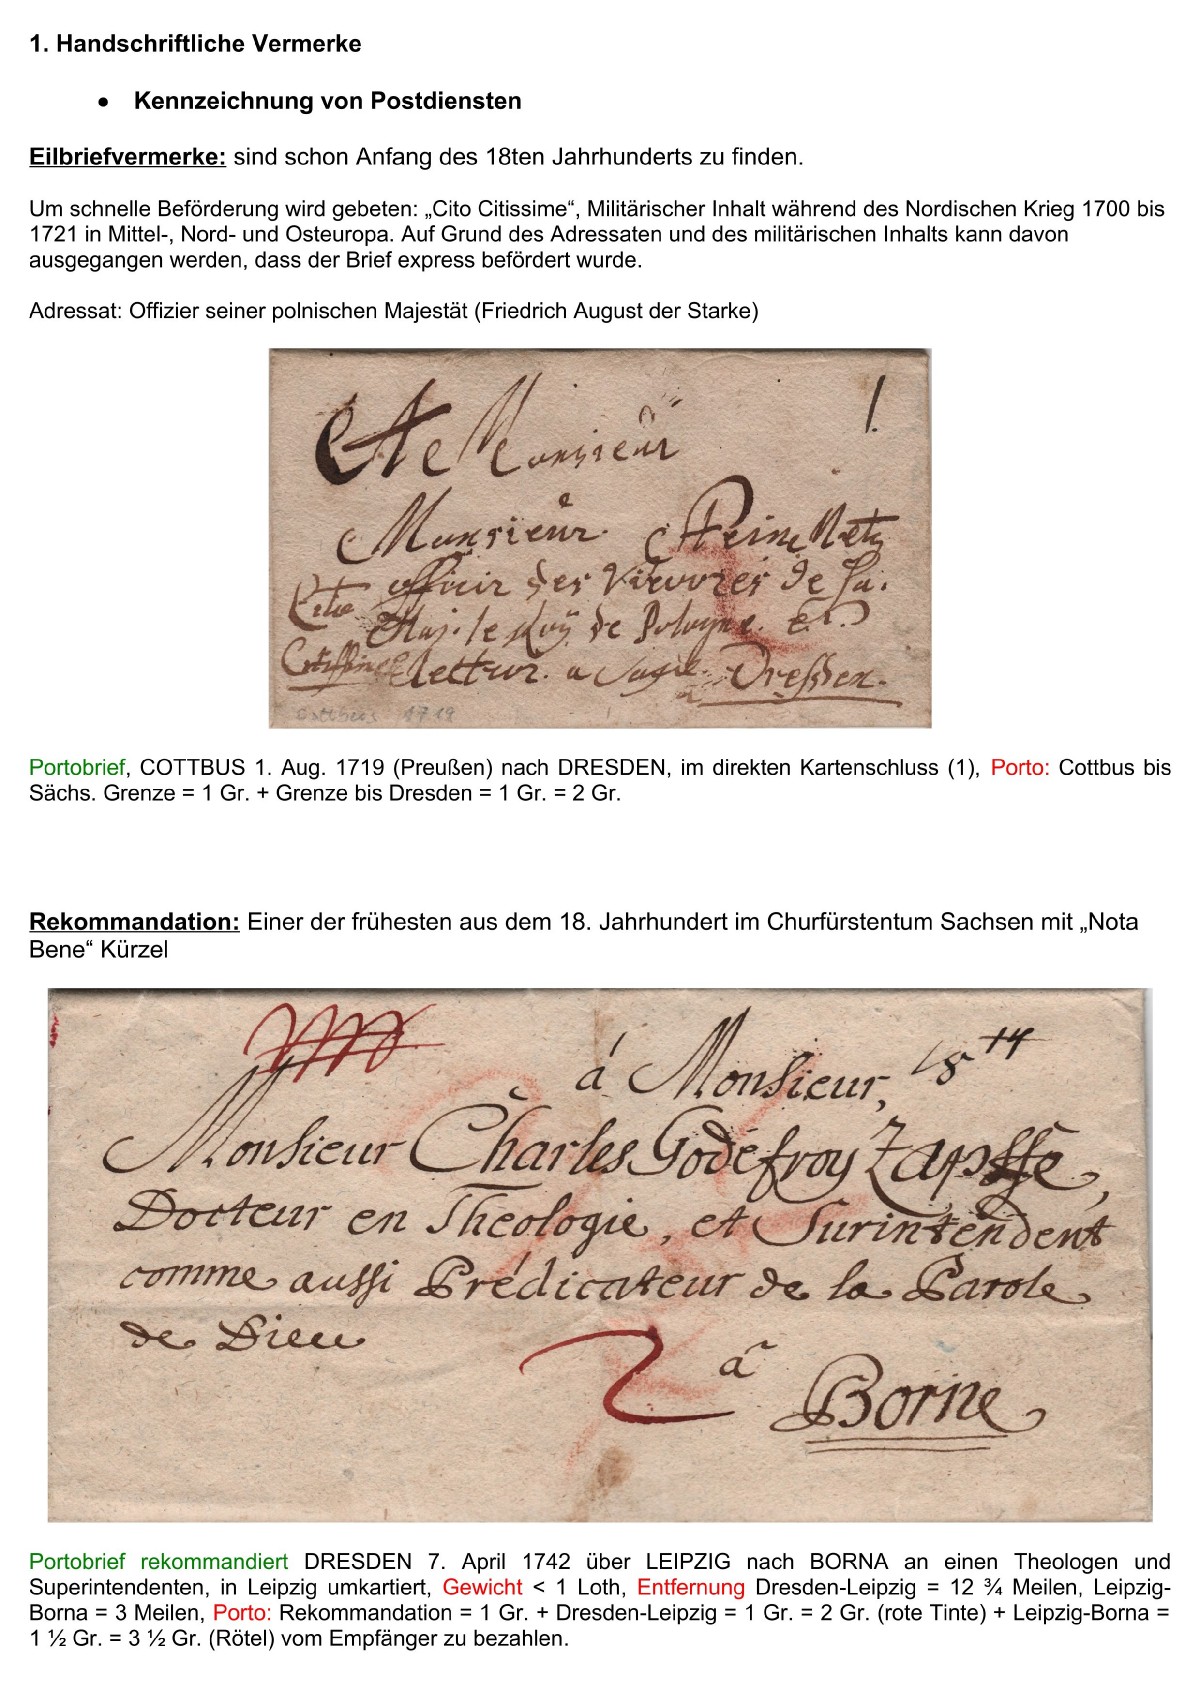 1. Handschriftliche Vermerke
• Kennzeichnung von Postdiensten
Eilbriefvermerke: sind schon Anfang des 18ten Jahrhunderts zu finden.
Um schnelle Beförderung wird gebeten: „Cito Citissime“, Militärischer Inhalt während des Nordischen Krieg 1700 bis
1721 in Mittel-, Nord- und Osteuropa. Auf Grund des Adressaten und des militärischen Inhalts kann davon
ausgegangen werden, dass der Brief express befördert wurde.
Adressat: Offizier seiner polnischen Majestät (Friedrich August der Starke)
Monsieur 1.
Monsieur
officir des de Sa.
Cito Maj. le Roÿ de Pologne. et
Citissime a Dreßden.
Cottbus 1719
Portobrief, COTTBUS 1. Aug. 1719 (Preußen) nach DRESDEN, im direkten Kartenschluss (1), Porto: Cottbus bis
Sächs. Grenze = 1 Gr. + Grenze bis Dresden = 1 Gr. = 2 Gr.
Rekommandation: Einer der frühesten aus dem 18. Jahrhundert im Churfürstentum Sachsen mit „Nota
Bene“ Kürzel
á Monsieur,
Monsieur Charles Godéfroy Zapffe,
Docteur en Theologie, et Surintendent
comme aussi Prédicateur de la Parole
de Dieu
2 à
Borne
Portobrief rekommandiert DRESDEN 7. April 1742 über LEIPZIG nach BORNA an einen Theologen und
Superintendenten, in Leipzig umkartiert, Gewicht < 1 Loth, Entfernung Dresden-Leipzig = 12 ¾ Meilen, Leipzig-
Borna = 3 Meilen, Porto: Rekommandation = 1 Gr. + Dresden-Leipzig = 1 Gr. = 2 Gr. (rote Tinte) + Leipzig-Borna =
1 ½ Gr. = 3 ½ Gr. (Rötel) vom Empfänger zu bezahlen.